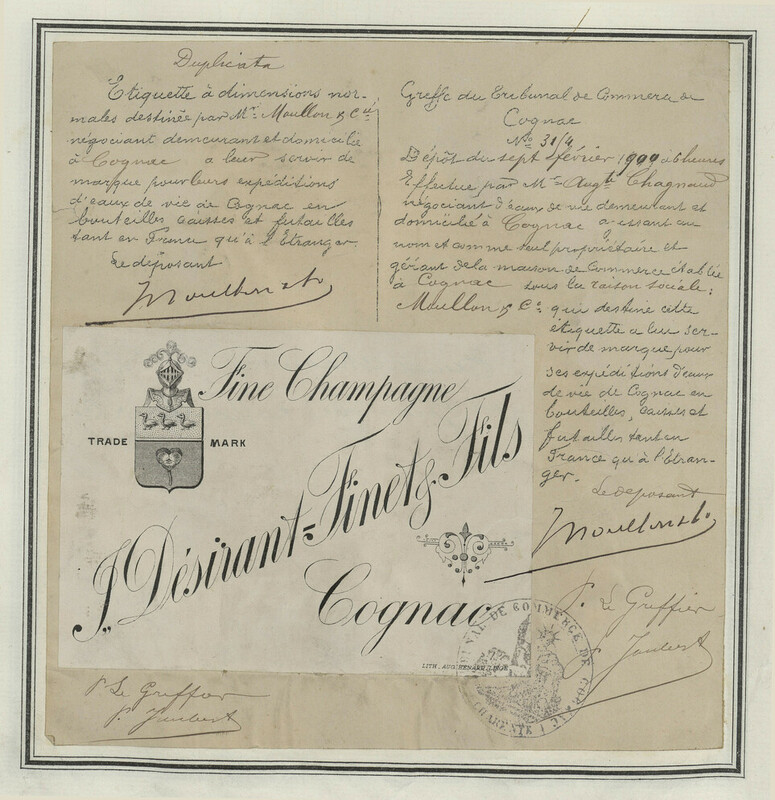 Duplicata
Etiquette à dimensions nor-
males destinée par Mrs Moullon & Cie
négociant demeurant et domicilié
à Cognac a leur servir de
marque pour leurs expéditions
d'eaux de vie de Cognac en
bouteilles caisses et futailles
tant en France qu'à l'Etranger
Le déposant
Moullon & Co
Greffe du Tribunal de Commerce de
Cognac
No 31/4
Dépôt du sept février à 6 heures
Effectué par Mr Augte Chagnaud
négociant d'eaux de vie demeurant et
domicilié à Cognac agissant au
nom et comme seul propriétaire et
gérant de la maison de Commerce établie
à Cognac sous la raison sociale :
Moullon & Co qui destine cette
étiquette a lui ser-
vir de marque pour
ses expéditions d'eaux
de vie de Cognac en
bouteilles, caisses et
futailles tant en
France qu'à l'Etran-
ger.
Le deposant
Moullon & Co
P. Le Greffier
P. Joubert
Fine Champagne
TRADE MARK
J. Désirant-Finet & Fils
Cognac
LITH. AUG.
TRIBUNAL DE COMMERCE DE COGNAC
CHARENTE
P. Le Greffier
P. Joubert